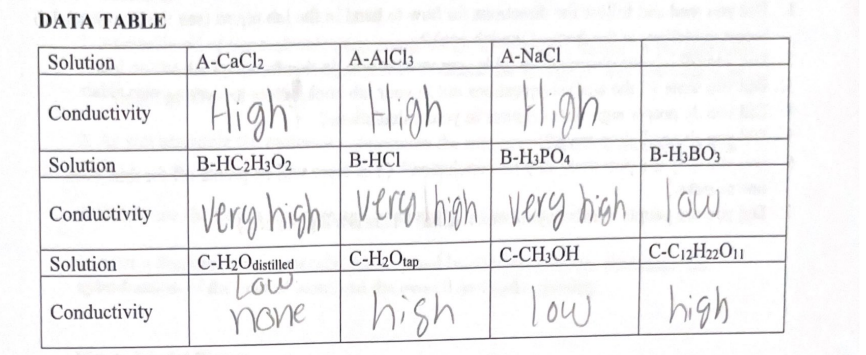 DATA TABLE
Solution A-CaCl₂ A-AlCl₃ A-NaCl
Conductivity High High High
Solution B-HC₂H₃O₂ B-HCl B-H₃PO₄ B-H₃BO₃
Conductivity very high very high very high low
Solution C-H₂Odistilled C-H₂Otap C-CH₃OH C-C₁₂H₂₂O₁₁
Low
Conductivity none high low high